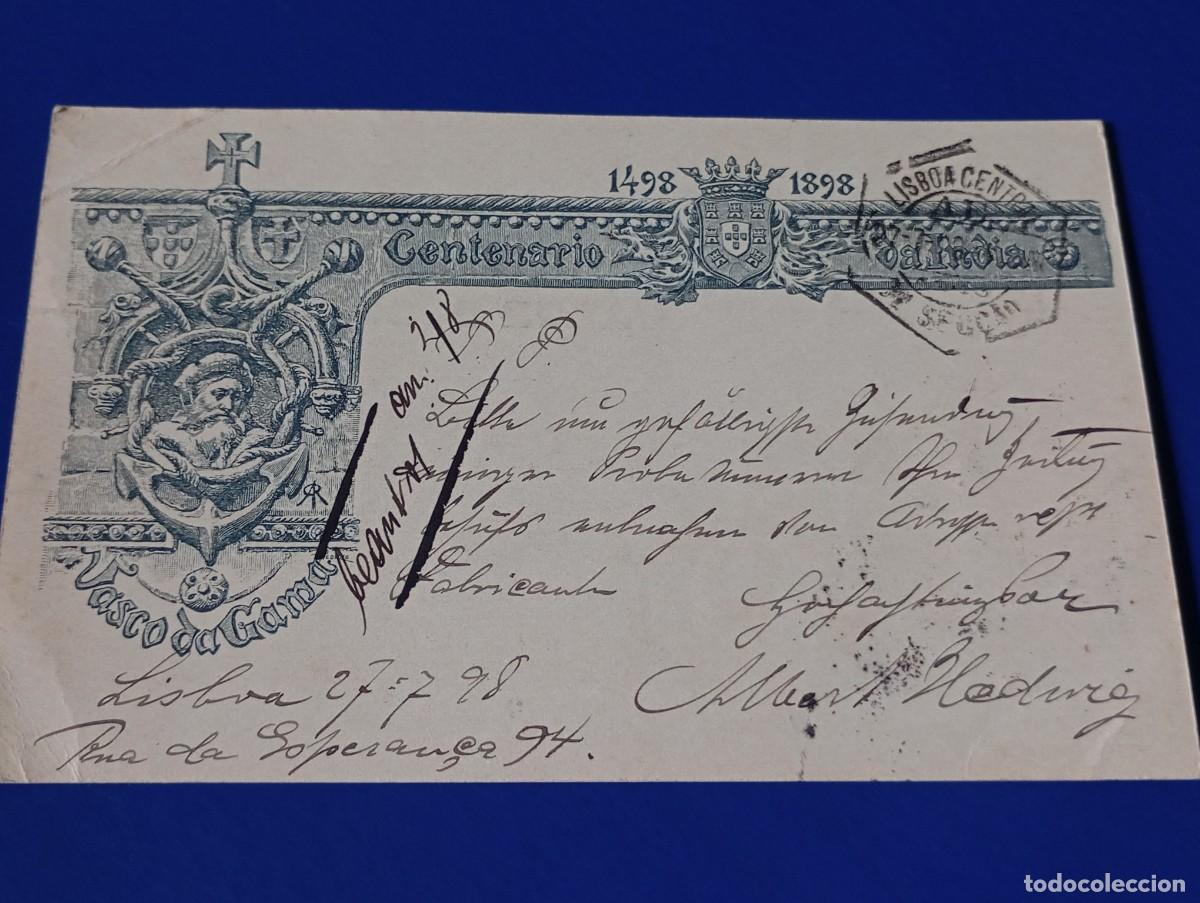 1498 1898
Centenario da India
LISBOA CENTRAL
SECÇÃO
Vasco da Gama
beantw. am. 2/8
Bitte um gefällige Zusendung
einiger Probenummern Ihrer Zeitung
behufs von resp
Fabricante
Hochachtungsvoll
Albert Hedwig
Lisboa 27=7 98
Rua da Esperança 94.
todocoleccion